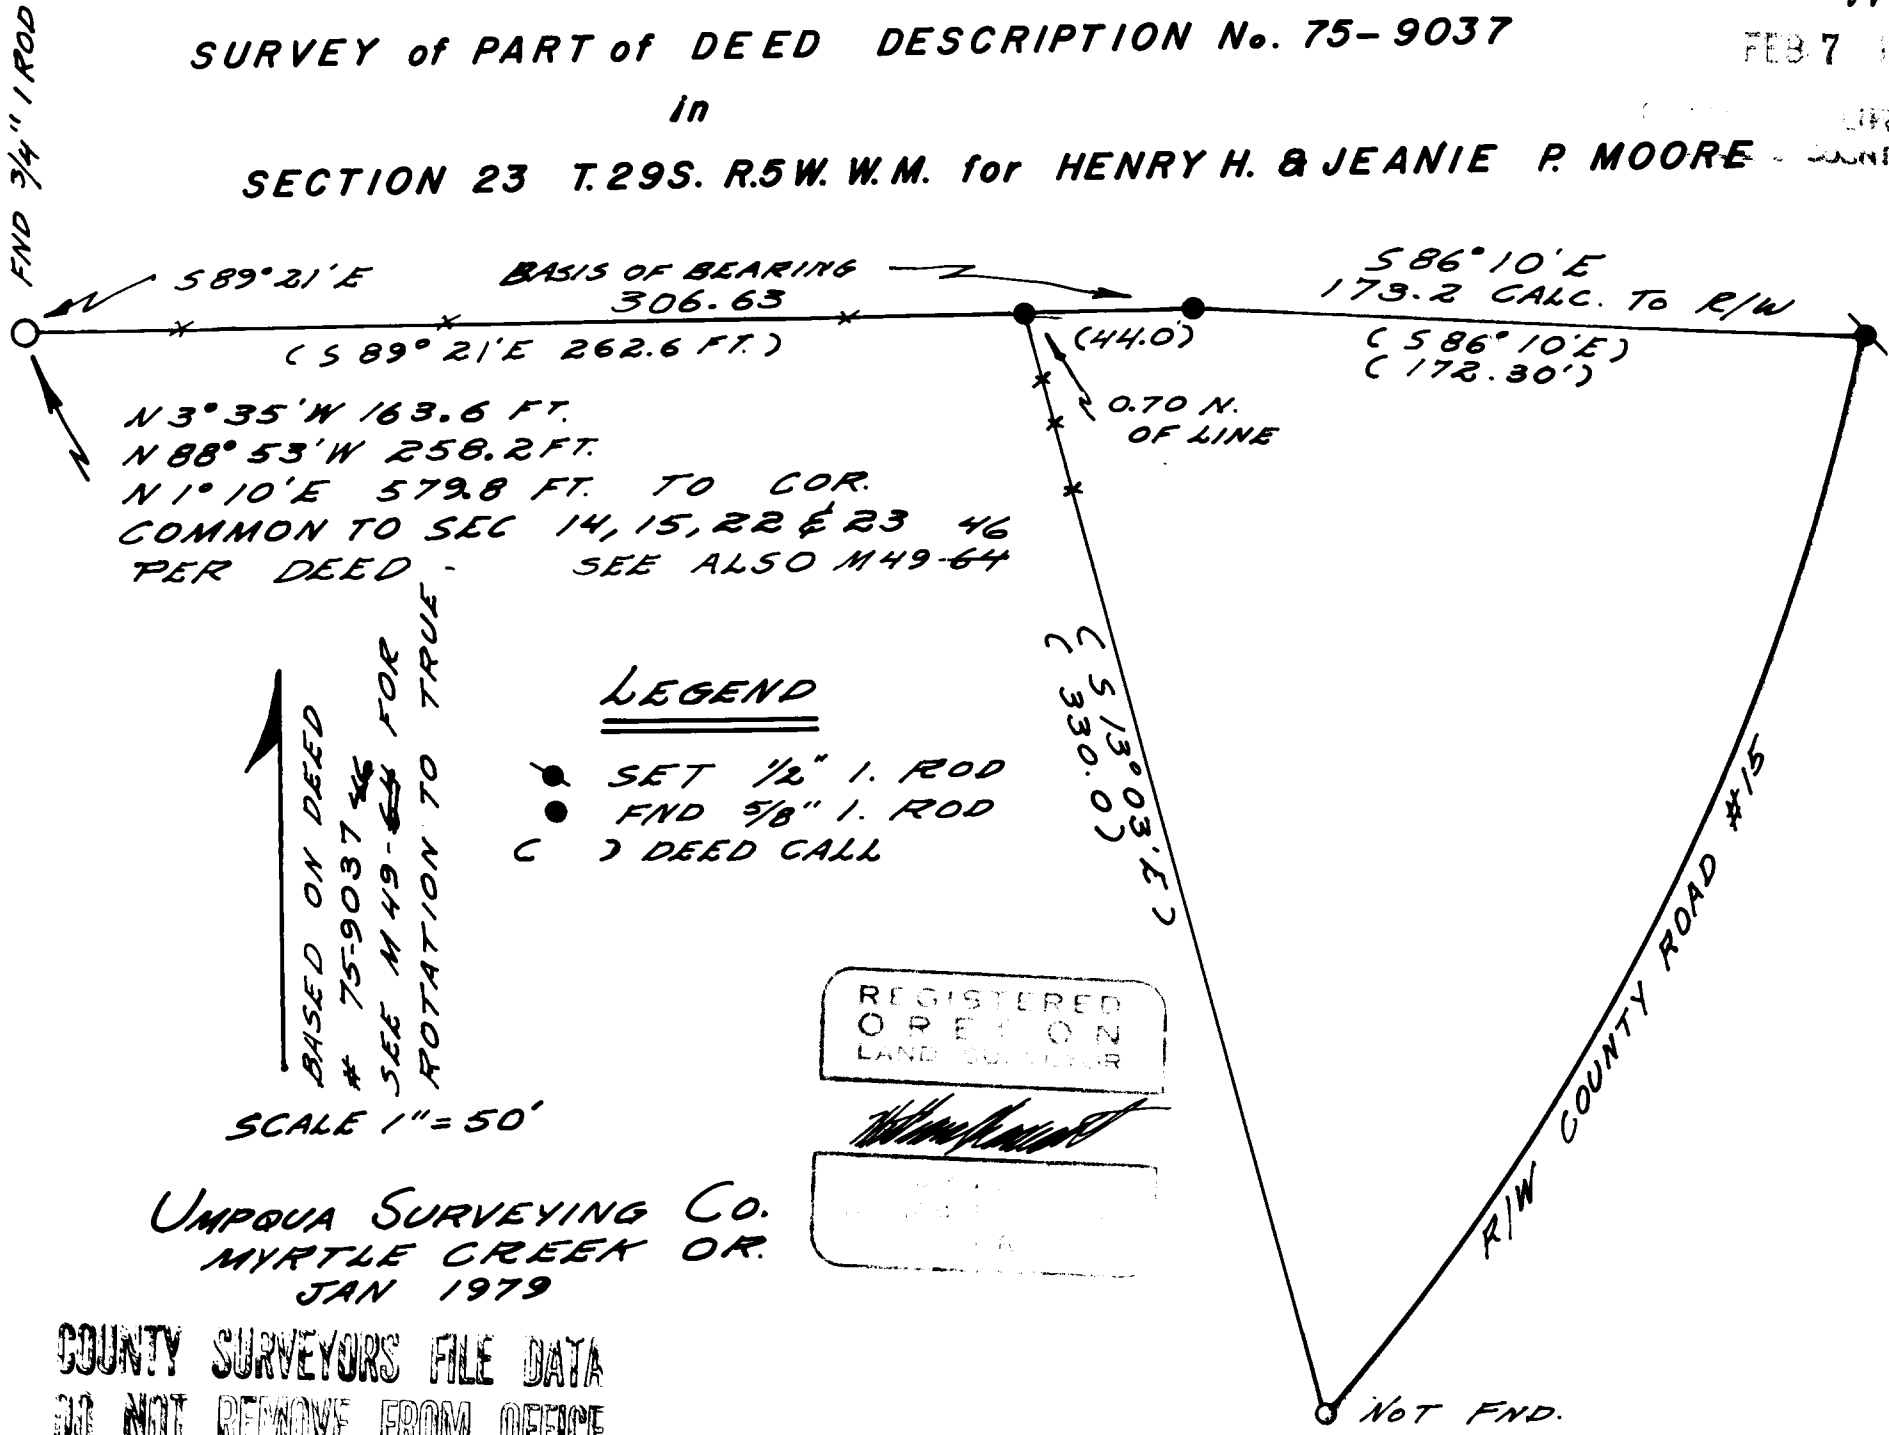 SURVEY of PART of DEED DESCRIPTION No. 75-9037
in
SECTION 23 T.29S. R.5W. W.M. for HENRY H. & JEANIE P. MOORE
FEB 7
FND 3/4" I ROD
S 89° 21' E
BASIS OF BEARING
306.63
(S 89° 21' E 262.6 FT.)
(44.0')
S 86° 10' E
173.2 CALC. TO R/W
(S 86° 10' E)
(172.30')
0.70 N.
OF LINE
N 3° 35' W 163.6 FT.
N 88° 53' W 258.2 FT.
N 1° 10' E 579.8 FT. TO COR.
COMMON TO SEC 14, 15, 22 & 23 46
PER DEED - SEE ALSO M49-64
(S 13° 03' E)
(330.0)
BASED ON DEED
# 75-9037 46
SEE M49-64 FOR
ROTATION TO TRUE
SCALE 1"=50'
LEGEND
SET 1/2" I. ROD
FND 5/8" I. ROD
( ) DEED CALL
R/W COUNTY ROAD #15
REGISTERED
OREGON
LAND SURVEYOR
UMPQUA SURVEYING CO.
MYRTLE CREEK OR.
JAN 1979
COUNTY SURVEYORS FILE DATA
DO NOT REMOVE FROM OFFICE
NOT FND.